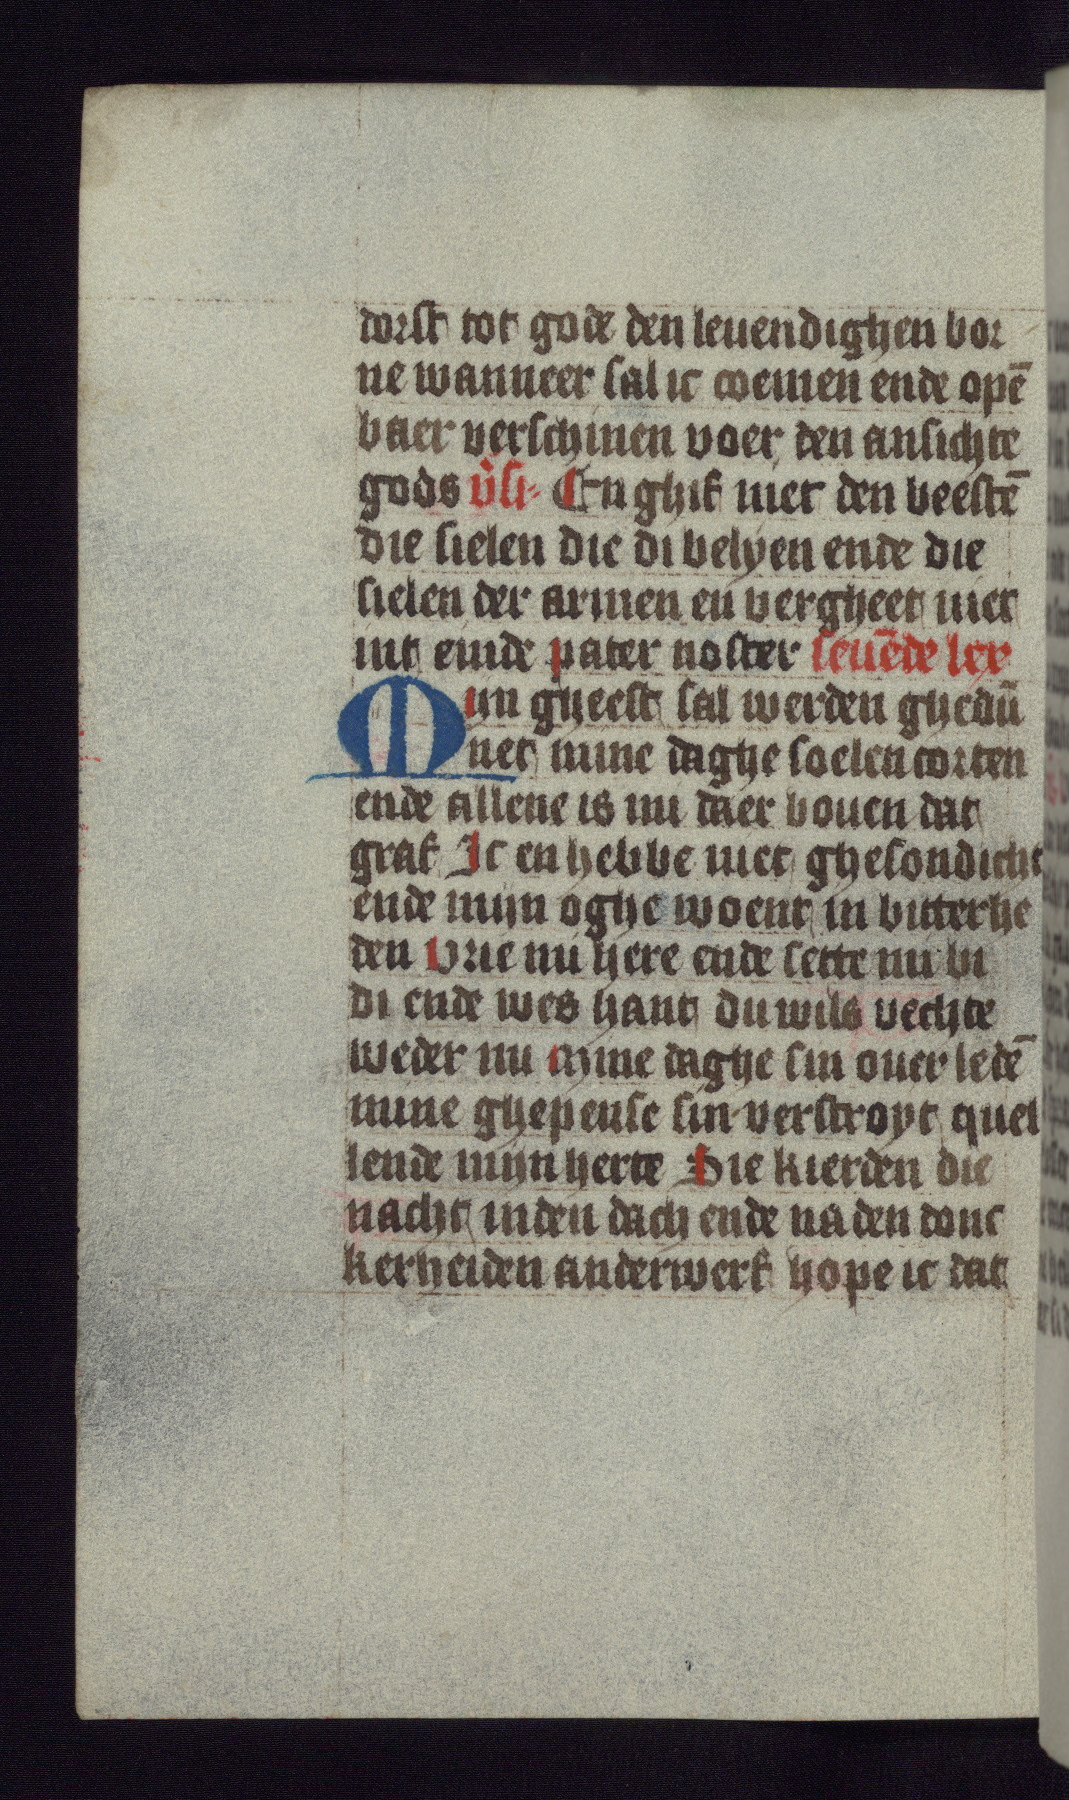 dorst tot gode den leuendighen bor
ne wanneer sal ic coemen ende opē
baer verschinen voer den ansichte
gods v̉si En ghif niet den beestē
die sielen die di belyen ende die
sielen der armen en vergheet niet
int einde pater noster seuēde lex
Mijn gheest sal werden ghedū
net mine daghe soelen corten
ende allene is mi daer bouen dat
graf Ic en hebbe niet ghesondicht
ende mijn oghe woent in bitterhe
den Vrie mi here ende sette mi bi
di ende wes hant du wils vechte
weder mi Mine daghe sin ouer ledē
mine ghepense sin verstroyt quel
lende mijn herte Die kierden die
nacht in den dach ende na den donc
kerheiden anderwerf hope ic dat